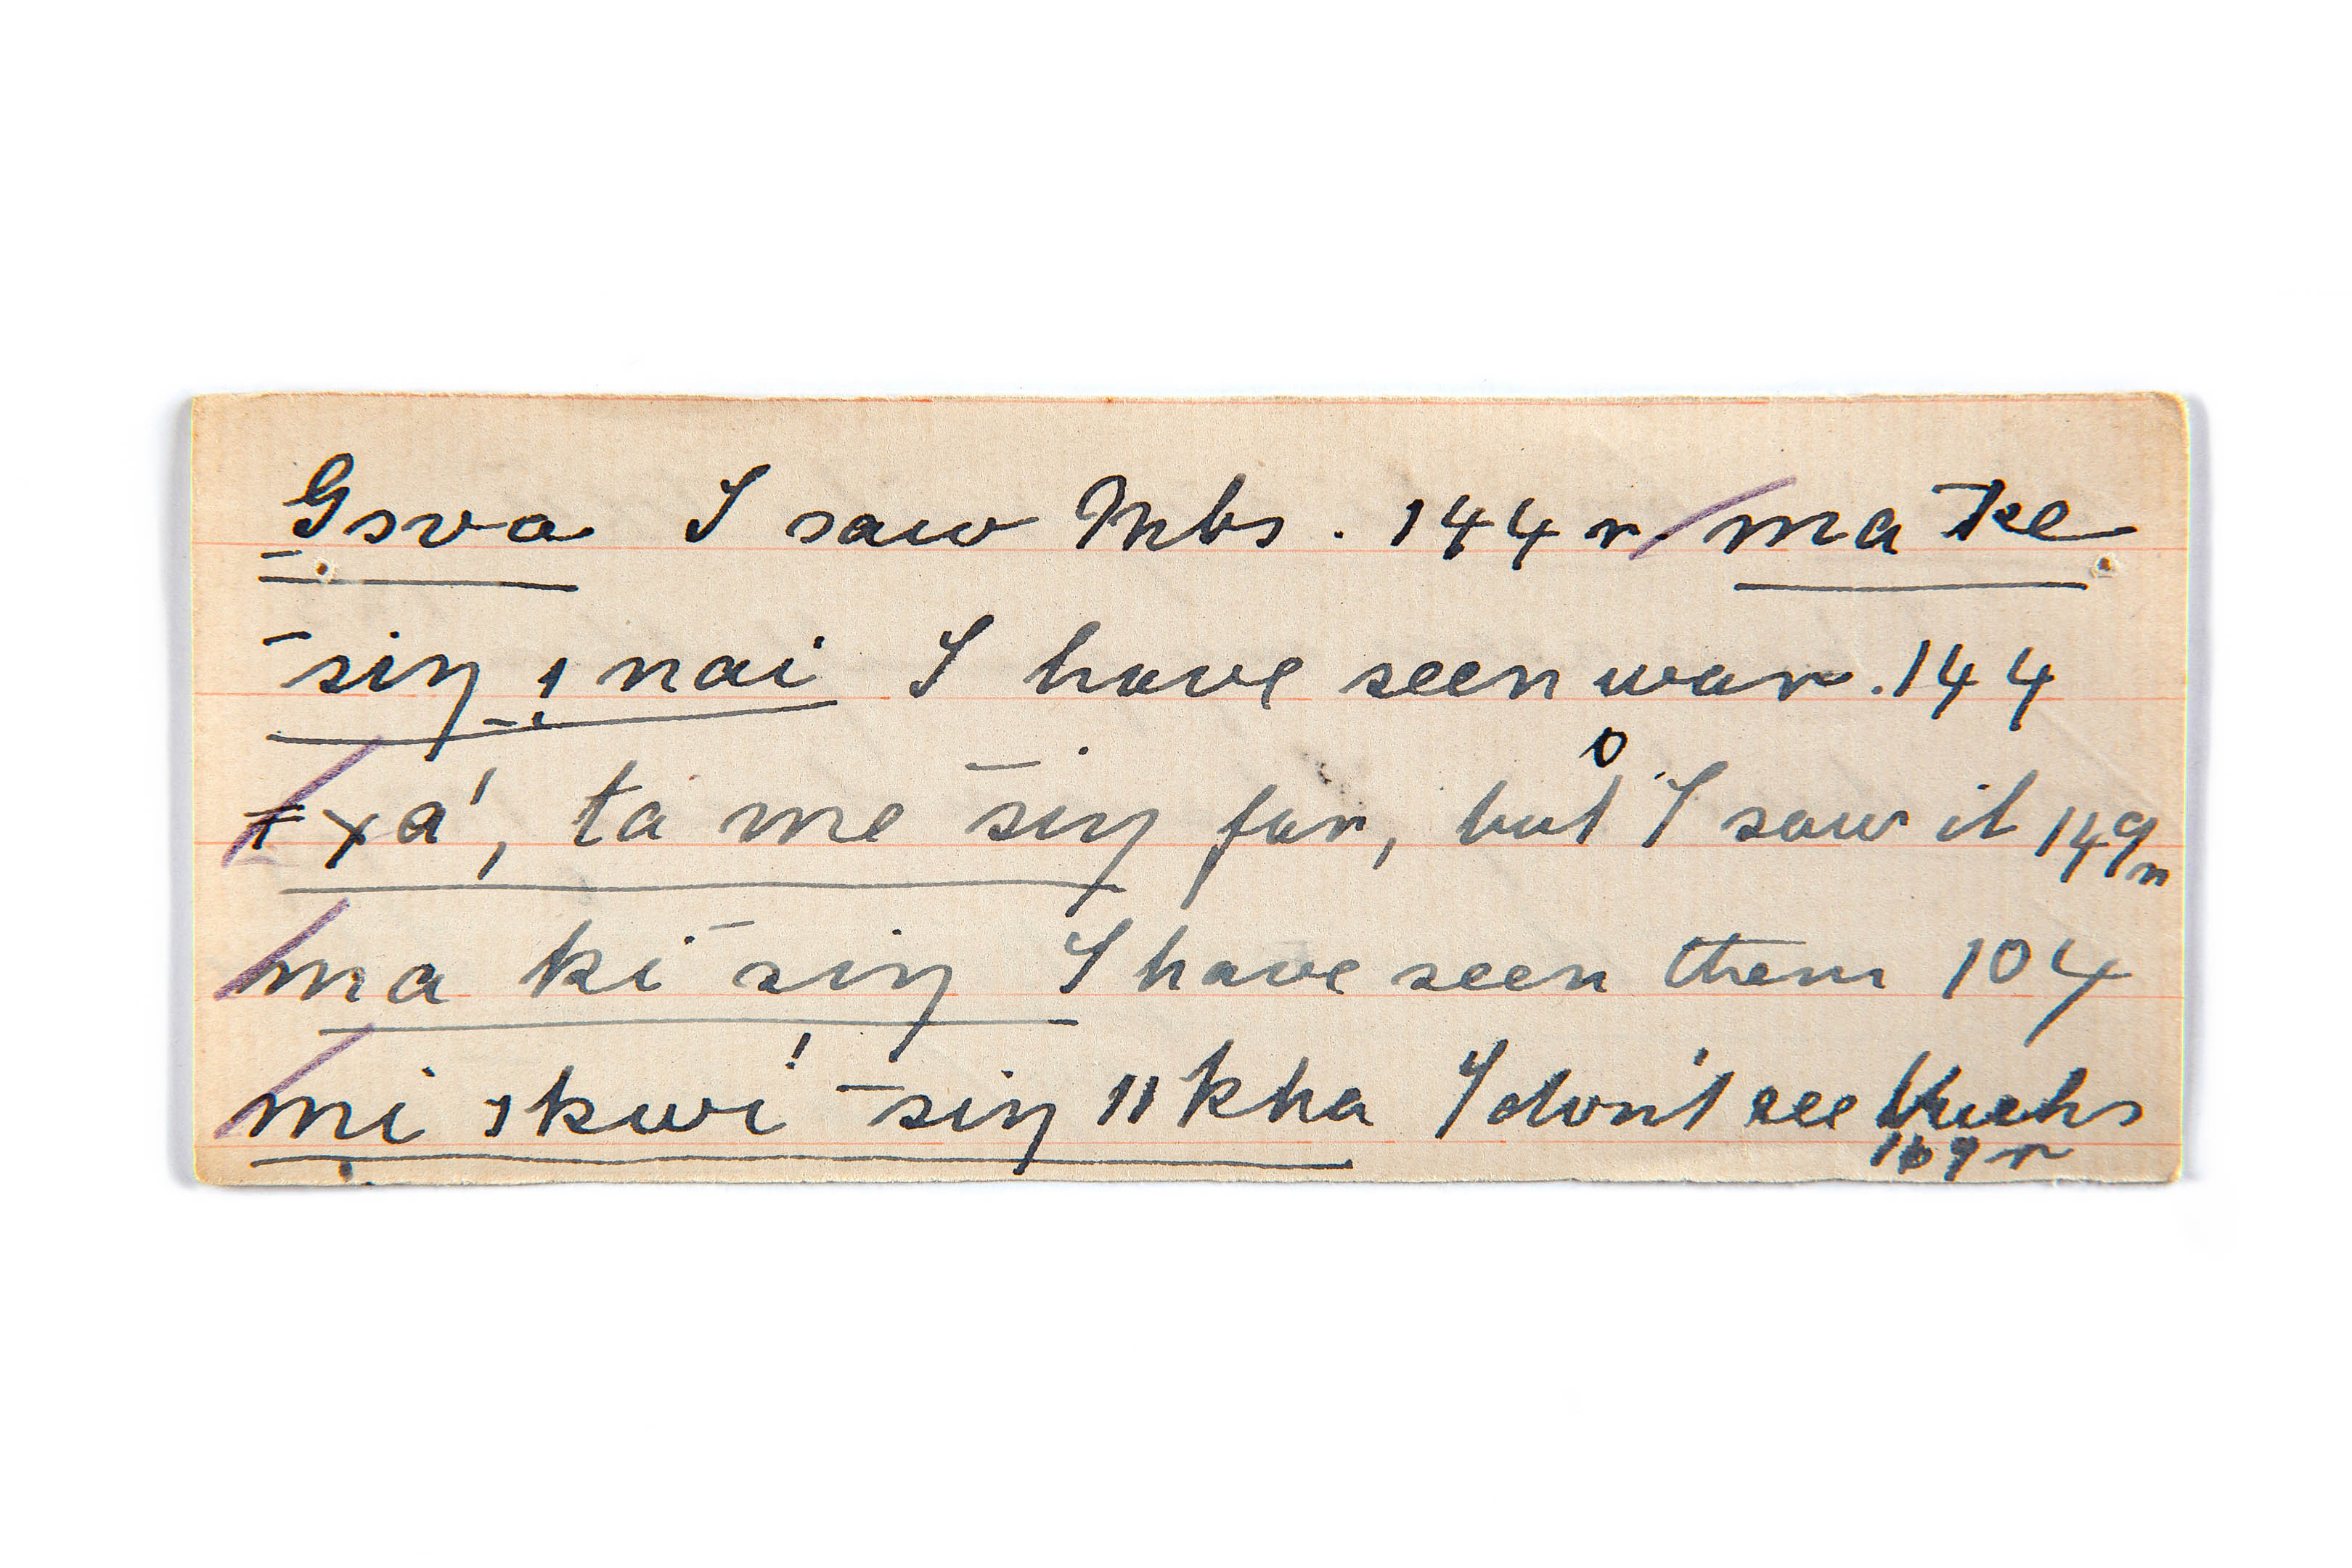 Gsva I saw Mbs. 144 r. ma ke
‾siŋ ı nai I have seen war. 144
ǂxá, ta me ‾siŋ far, but I saw it 149r
ma ki ‾siŋ I have seen them 104
mi ıkwi ‾siŋ ııkha I don't see 169 r